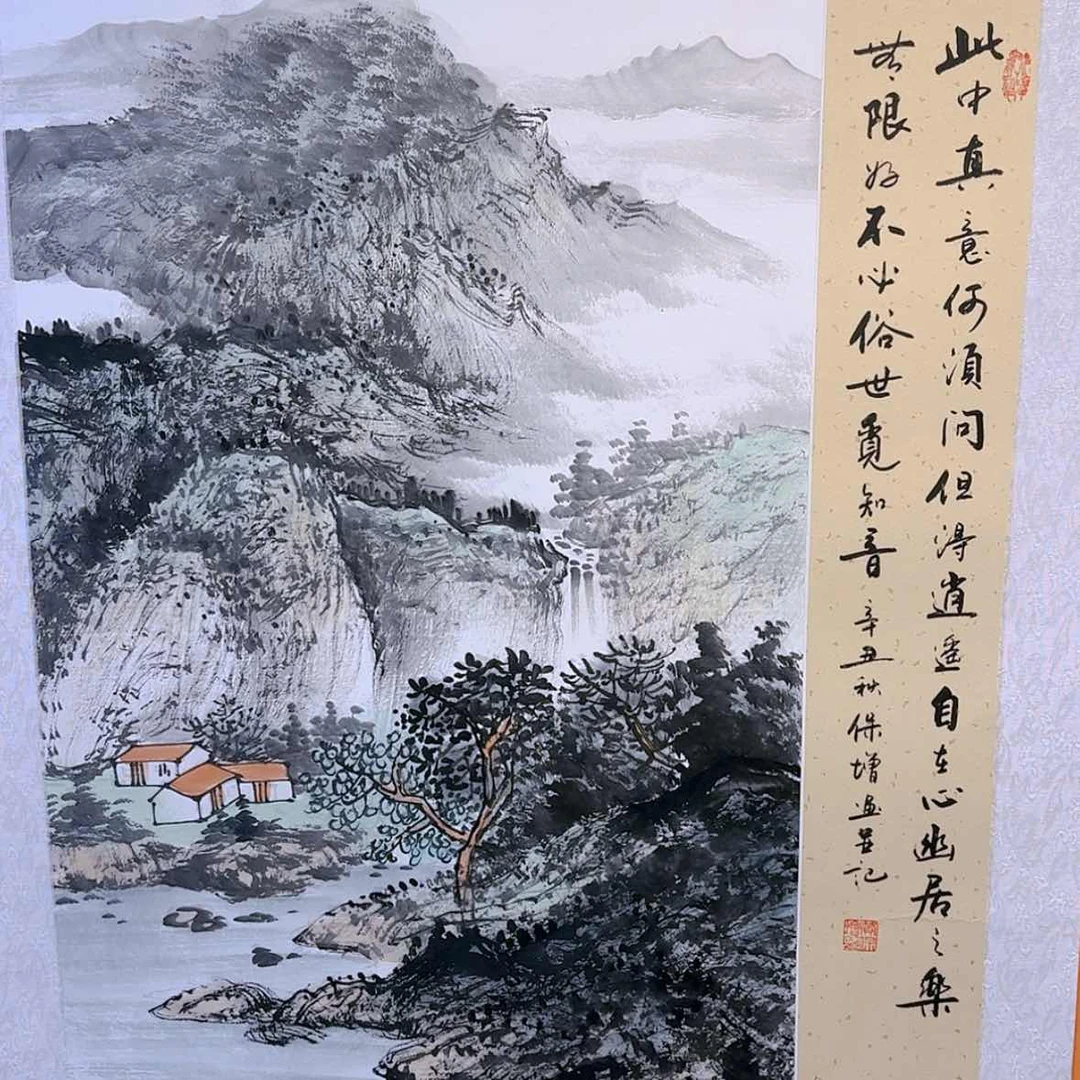 此中真意何須问但得逍遥自在心幽居之樂
無限好不必俗世覓知音 辛丑秋保增画並记